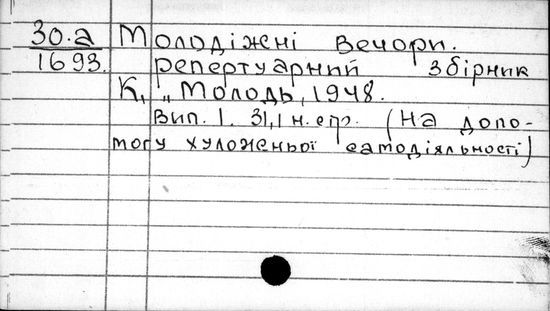 30.а Молодіжні вечори.
1693. репертуарний збірник
К, „Молодь, 1948.
Вип. 1. 31,1 н. стр. (На допо-
могу художеньої самодіяльності)